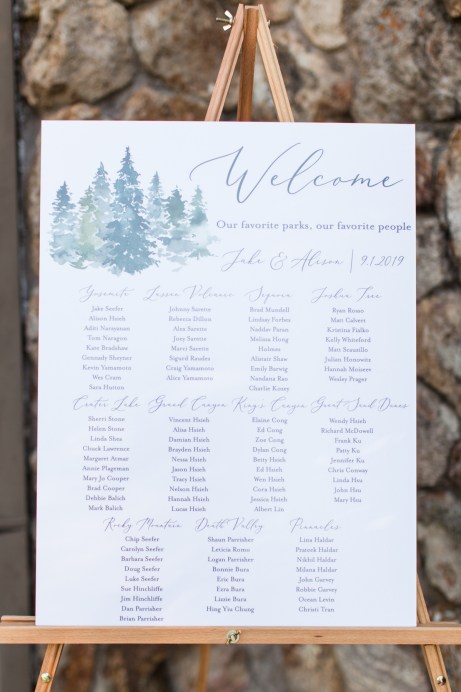 Welcome
Our favorite parks, our favorite people
Jake & Alison | 9.1.2019
Yosemite
Jake Seefer
Alison Hsieh
Aditi Narayanan
Tom Naragon
Kate Bradshaw
Gennady Sheyner
Kevin Yamamoto
Wes Cram
Sara Hutton
Lassen Volcanic
Johnny Sarette
Rebecca Dillon
Alex Sarette
Joey Sarette
Marci Sarette
Sigurd Raudes
Craig Yamamoto
Alice Yamamoto
Sequoia
Brad Mundell
Lindsay Forbes
Naddav Paran
Melissa Hong
Hudson
Alistair Shaw
Emily Barwig
Nandana Rao
Charlie Kossy
Joshua Tree
Ryan Romo
Matt Calvert
Kristina Fialko
Kelly Whiteford
Matt Scanzillo
Julian Honowitz
Hannah Moises
Wesley Prager
Crater Lake
Sherri Stone
Helen Stone
Linda Shea
Chuck Lawrence
Margaret Azmar
Annie Plageman
Mary Jo Cooper
Brad Cooper
Debbie Balich
Mark Balich
Grand Canyon
Vincent Hsieh
Alisa Hsieh
Damian Hsieh
Brayden Hsieh
Nessa Hsieh
Jason Hsieh
Tracy Hsieh
Nelson Hsieh
Hannah Hsieh
Lucas Hsieh
King's Canyon
Elaine Cong
Ed Cong
Zoe Cong
Dylan Cong
Betty Hsieh
Ed Hsieh
Wen Hsieh
Cora Hsieh
Jessica Hsieh
Albert Lin
Great Sand Dunes
Wendy Hsieh
Richard McDowell
Frank Ku
Patty Ku
Jennifer Ku
Chris Conway
Linda Hsu
John Hsu
Mary Hsu
Rocky Mountain
Chip Seefer
Carolyn Seefer
Barbara Seefer
Doug Seefer
Luke Seefer
Sue Hinchliffe
Jim Hinchliffe
Dan Parrisher
Brian Parrisher
Death Valley
Shaun Parrisher
Leticia Romo
Logan Parrisher
Bonnie Bura
Eric Bura
Ezra Bura
Lizzie Bura
Hing Yiu Chung
Pinnacles
Lina Haldar
Prateek Haldar
Nikhil Haldar
Milana Haldar
John Garvey
Robbie Garvey
Ocean Levin
Christi Tran